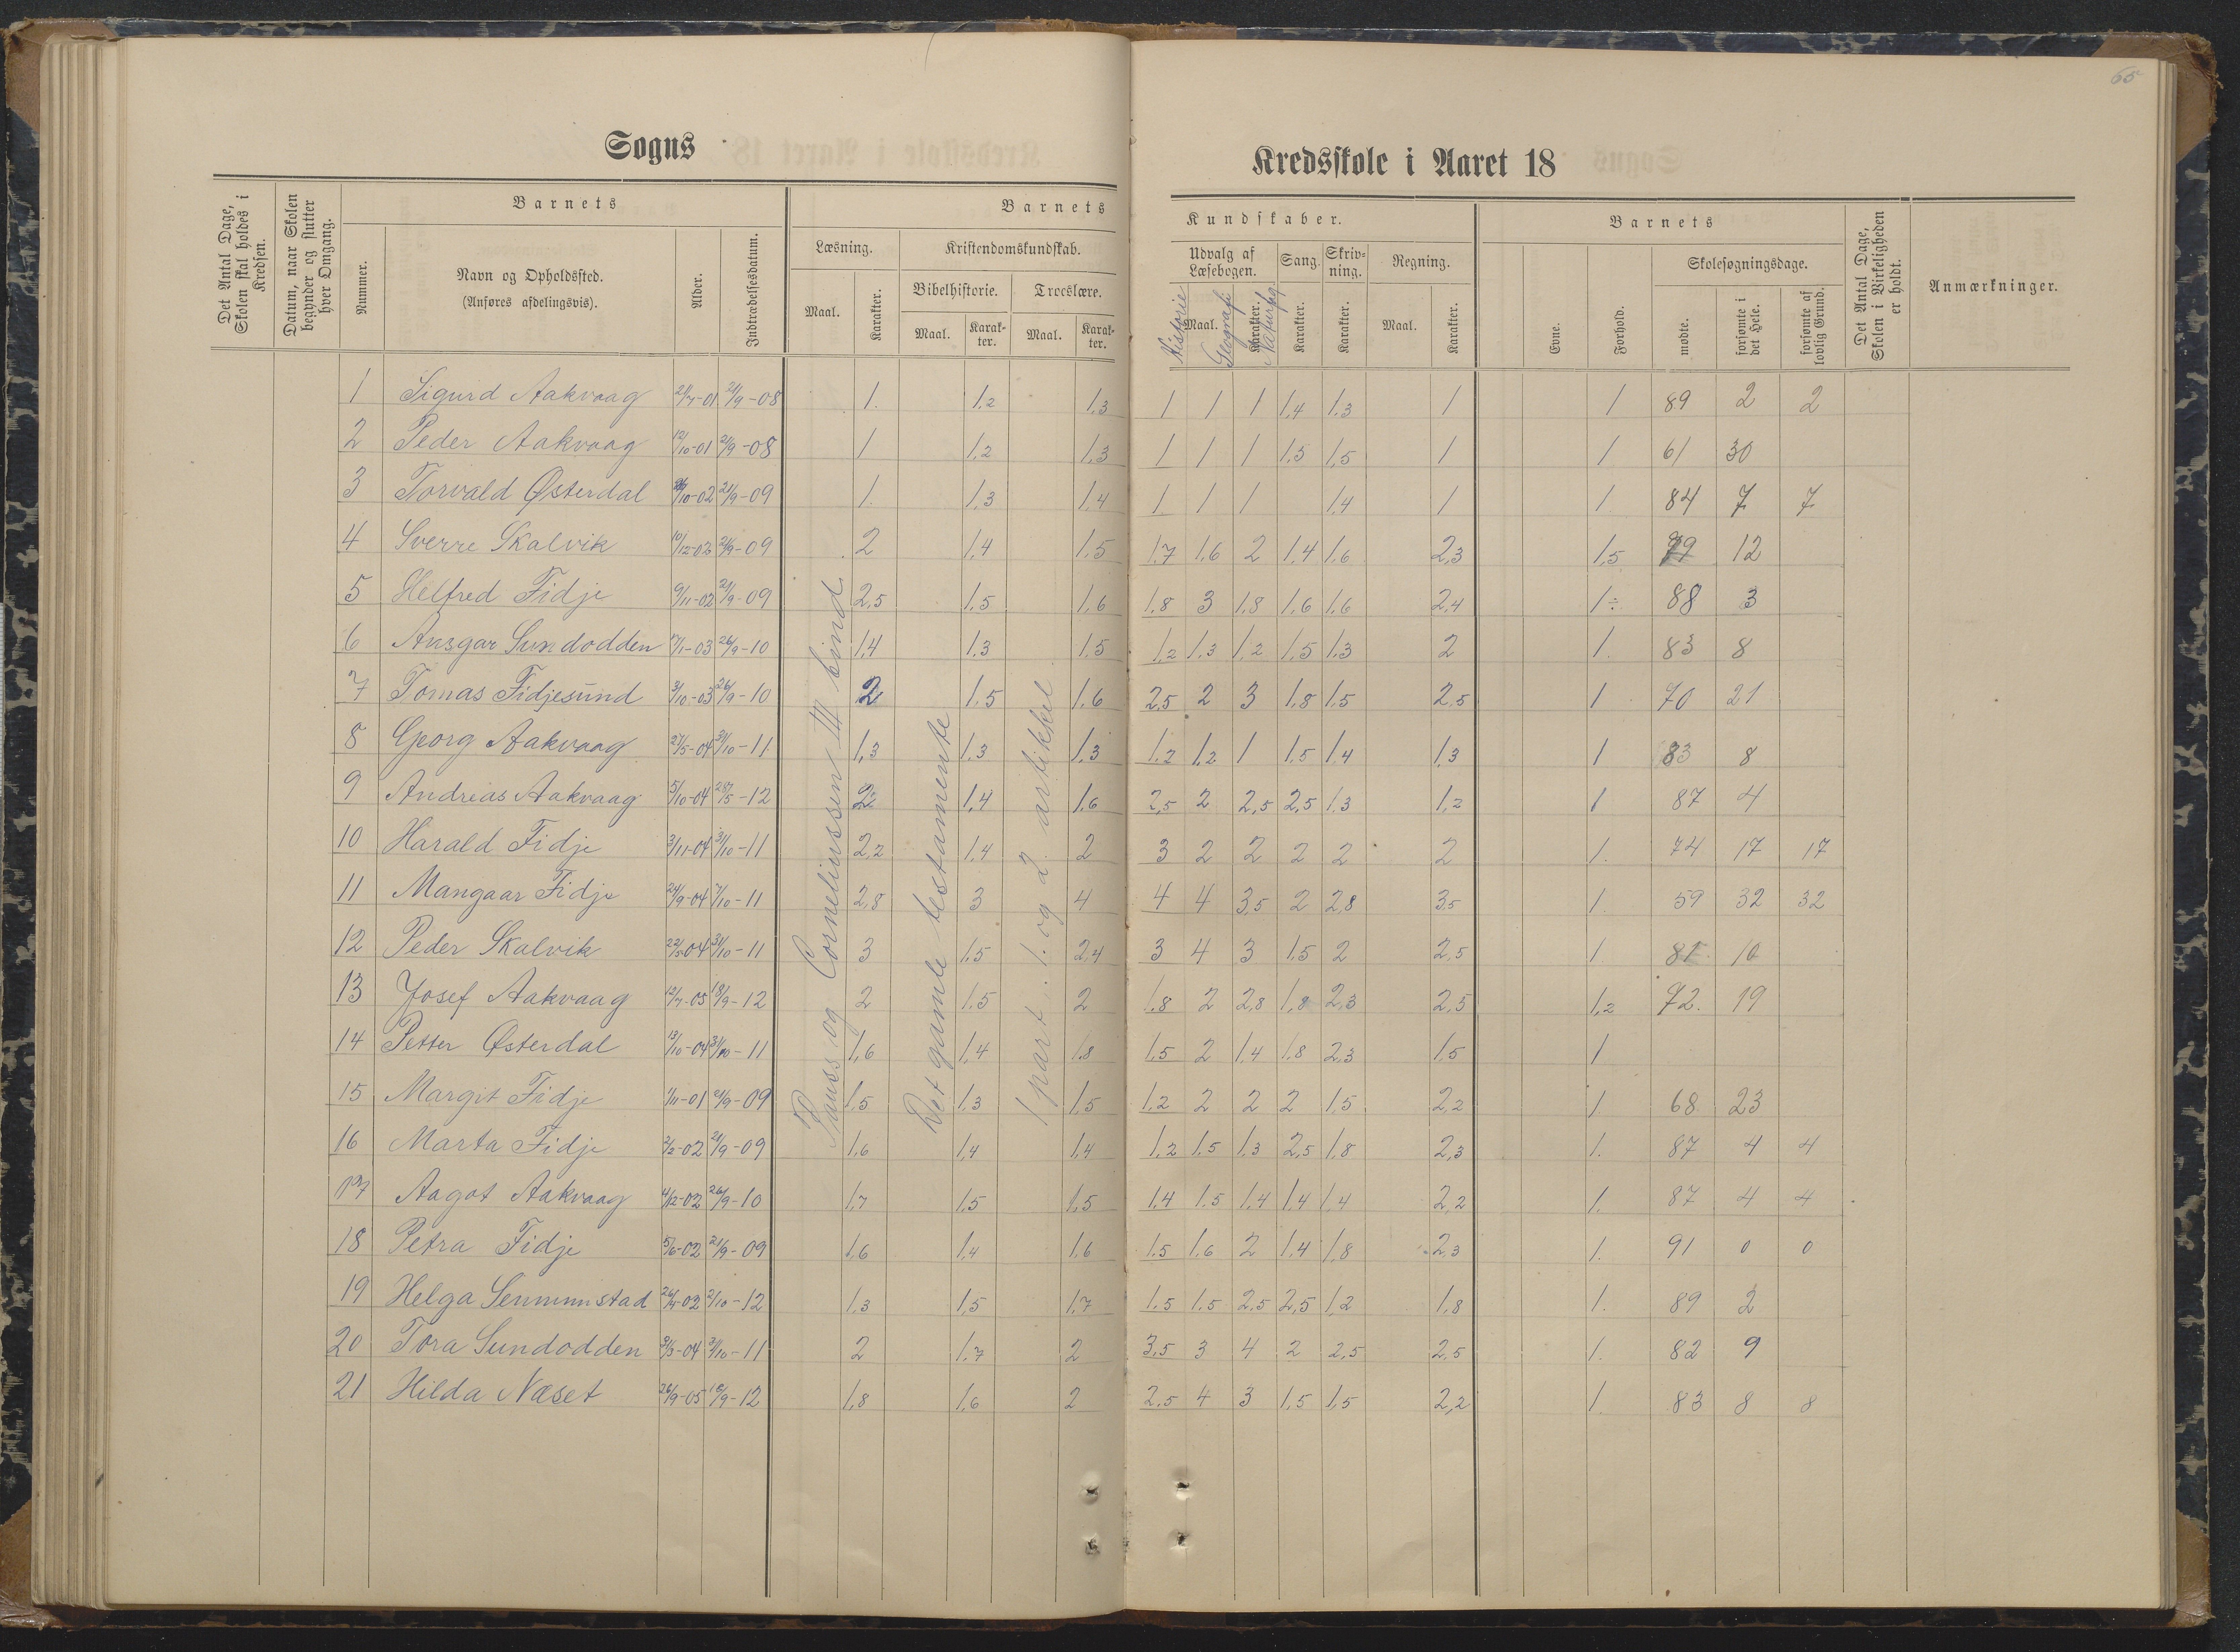 65
Sogns
Kredsskole i Aaret 18
Det Antal Dage, Skolen skal holdes i Kredsen.
Datum, naar Skolen begynder og slutter hver Omgang.
Barnets
Nummer.
Navn og Opholdssted.
(Anføres afdelingsvis).
Alder.
Indtrædelsesdatum.
Barnets
Læsning.
Maal.
Karakter.
Kristendomskundskab.
Bibelhistorie.
Maal.
Karakter.
Troeslære.
Maal.
Karakter.
Kundskaber.
Udvalg af Læsebogen.
Maal.
Karakter.
Historie
Geografi
Naturfag
Sang.
Karakter.
Skrivning.
Karakter.
Regning.
Maal.
Karakter.
Barnets
Evne.
Forhold.
Skolesøgningsdage.
mødte.
forsømte i det Hele.
forsømte af lovlig Grund.
Det Antal Dage, Skolen i Virkeligheden er holdt.
Anmærkninger.
Pauss og Corneliussen III bind
Det gamle testamente
1 part: 1. og 2. artikkel
1 Sigurd Aakvaag 21/7-01 21/9-08 1. 1,2 1,3 1 1 1 1,4 1,3 1 1 89 2 2
2 Peder Aakvaag 12/10-01 21/9-08 1 1,2 1,3 1 1 1 1,5 1,5 1 1 61 30
3 Torvald Østerdal 21/9-09 1. 1,3 1,4 1 1 1 1,4 1 1. 84 7 7
4 Sverre Skalvik 10/12-02 21/9-09 2 1,4 1,5 1,7 1,6 2 1,4 1,6 2,3 1,5 79 12
5 Helfred Fidje 9/11-02 21/9-09 2,5 1,5 1,6 1,8 3 1,8 1,6 1,6 2,4 1÷ 88 3
6 Ansgar Sundodden 17/1-03 26/9-10 1,4 1,3 1,5 1,2 1,3 1,2 1,5 1,3 2 1. 83 8
7 Tomas Fidjesund 3/10-03 26/9-10 2 1,5 1,6 2,5 2 3 1,8 1,5 2,5 1 70 21
8 Georg Aakvaag 27/5-04 31/10-11 1,3 1,3 1,3 1,2 1,2 1 1,5 1,4 1,3 1 83 8
9 Andreas Aakvaag 5/10-04 28/5-12 2 1,4 1,6 2,5 2 2,5 2,5 1,3 1,2 1 87 4
10 Harald Fidje 3/11-04 31/10-11 2,2 1,4 2 3 2 2 2 2 2 1. 74 17 17
11 Mangaar Fidje 24/9-04 7/10-11 2,8 3 4 4 4 3,5 2 2,8 3,5 1. 59 32 32
12 Peder Skalvik 22/5-04 31/10-11 3 1,5 2,4 3 4 3 1,5 2 2,5 1 81 10
13 Josef Aakvaag 12/7-05 18/9-12 2 1,5 2 1,8 2 2,8 1,8 2,3 2,5 1,2 72. 19
14 Petter Østerdal 13/10-04 31/10-11 1,6 1,4 1,8 1,5 2 1,4 1,8 2,3 1,5 1
15 Margit Fidje 1/11-01 21/9-09 1,5 1,3 1,5 1,2 2 2 2 1,5 2,2 1. 68 23
16 Marta Fidje 2/2-02 21/9-09 1,6 1,4 1,4 1,2 1,5 1,3 2,5 1,8 2,3 1. 87 4 4
17 Aagot Aakvaag 4/12-02 26/9-10 1,7 1,5 1,5 1,4 1,5 1,4 1,4 1,4 2,2 1. 87 4 4
18 Petra Fidje 5/6-02 21/9-09 1,6 1,4 1,6 1,5 1,6 2 1,4 1,8 2,3 1. 91 0 0
19 Helga Sennumstad 26/4-02 2/10-12 1,3 1,5 1,7 1,5 1,5 2,5 2,5 1,2 1,8 1. 89 2
20 Tora Sundodden 31/10-11 2 1,7 2 3,5 3 4 2 2,5 2,5 1. 82 9
21 Hilda Næset 26/9-05 18/9-12 1,8 1,6 2 2,5 4 3 1,5 1,5 2,2 1. 83 8 8